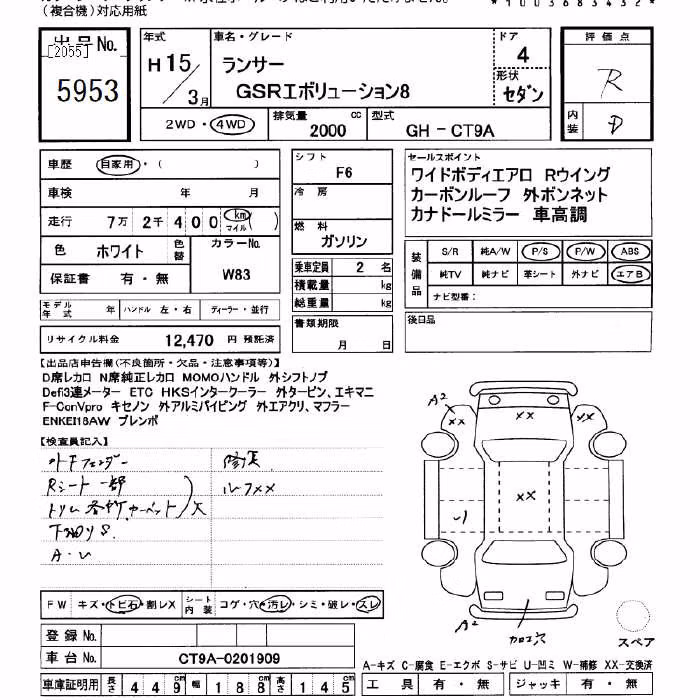 (複合機)対応用紙
*1003683432*
出品No.
[2055]
5953
年式
H15/3月
車名・グレード
ランサー
GSRエボリューション8
ドア
4
形状
セダン
評価点
R
内装
D
2WD・4WD
排気量
2000 cc
型式
GH－CT9A
車歴 自家用・( )
車検 年 月
走行 7万 2千 400 km マイル( )
色 ホワイト 色替
カラーNo.
W83
保証書 有・無
シフト
F6
冷房
燃料
ガソリン
乗車定員 2 名
積載量 kg
総重量 kg
セールスポイント
ワイドボディエアロ Rウイング
カーボンルーフ 外ボンネット
カナドールミラー 車高調
装備品
S/R 純A/W P/S P/W ABS
純TV 純ナビ 革シート 外ナビ エアB
ナビ型番:
モデル年式 年 ハンドル 左・右 ディーラー・並行
リサイクル料金 12,470 円 預託済
書類期限
月 日
後日品
【出品店申告欄(不良箇所・欠品・注意事項等)】
D席レカロ N席純正レカロ MOMOハンドル 外シフトノブ
Defi3連メーター ETC HKSインタークーラー 外タービン、エキマニ
F-ConVpro キセノン 外アルミパイピング 外エアクリ、マフラー
ENKEI18AW ブレンボ
【検査員記入】
Rシート一部
ルーフXX
A・U
A2
A2
XX
XX
XX
FW キズ・トビ石・割レX シート内装 コゲ・穴・汚レ・シミ・破レ・スレ
登録No.
車台No. CT9A-0201909
車庫証明用 長さ 449cm 幅 188cm 高さ 145cm
スペア
A-キズ C-腐食 E-エクボ S-サビ U-凹ミ W-補修 XX-交換済
工具 有・無 ジャッキ 有・無